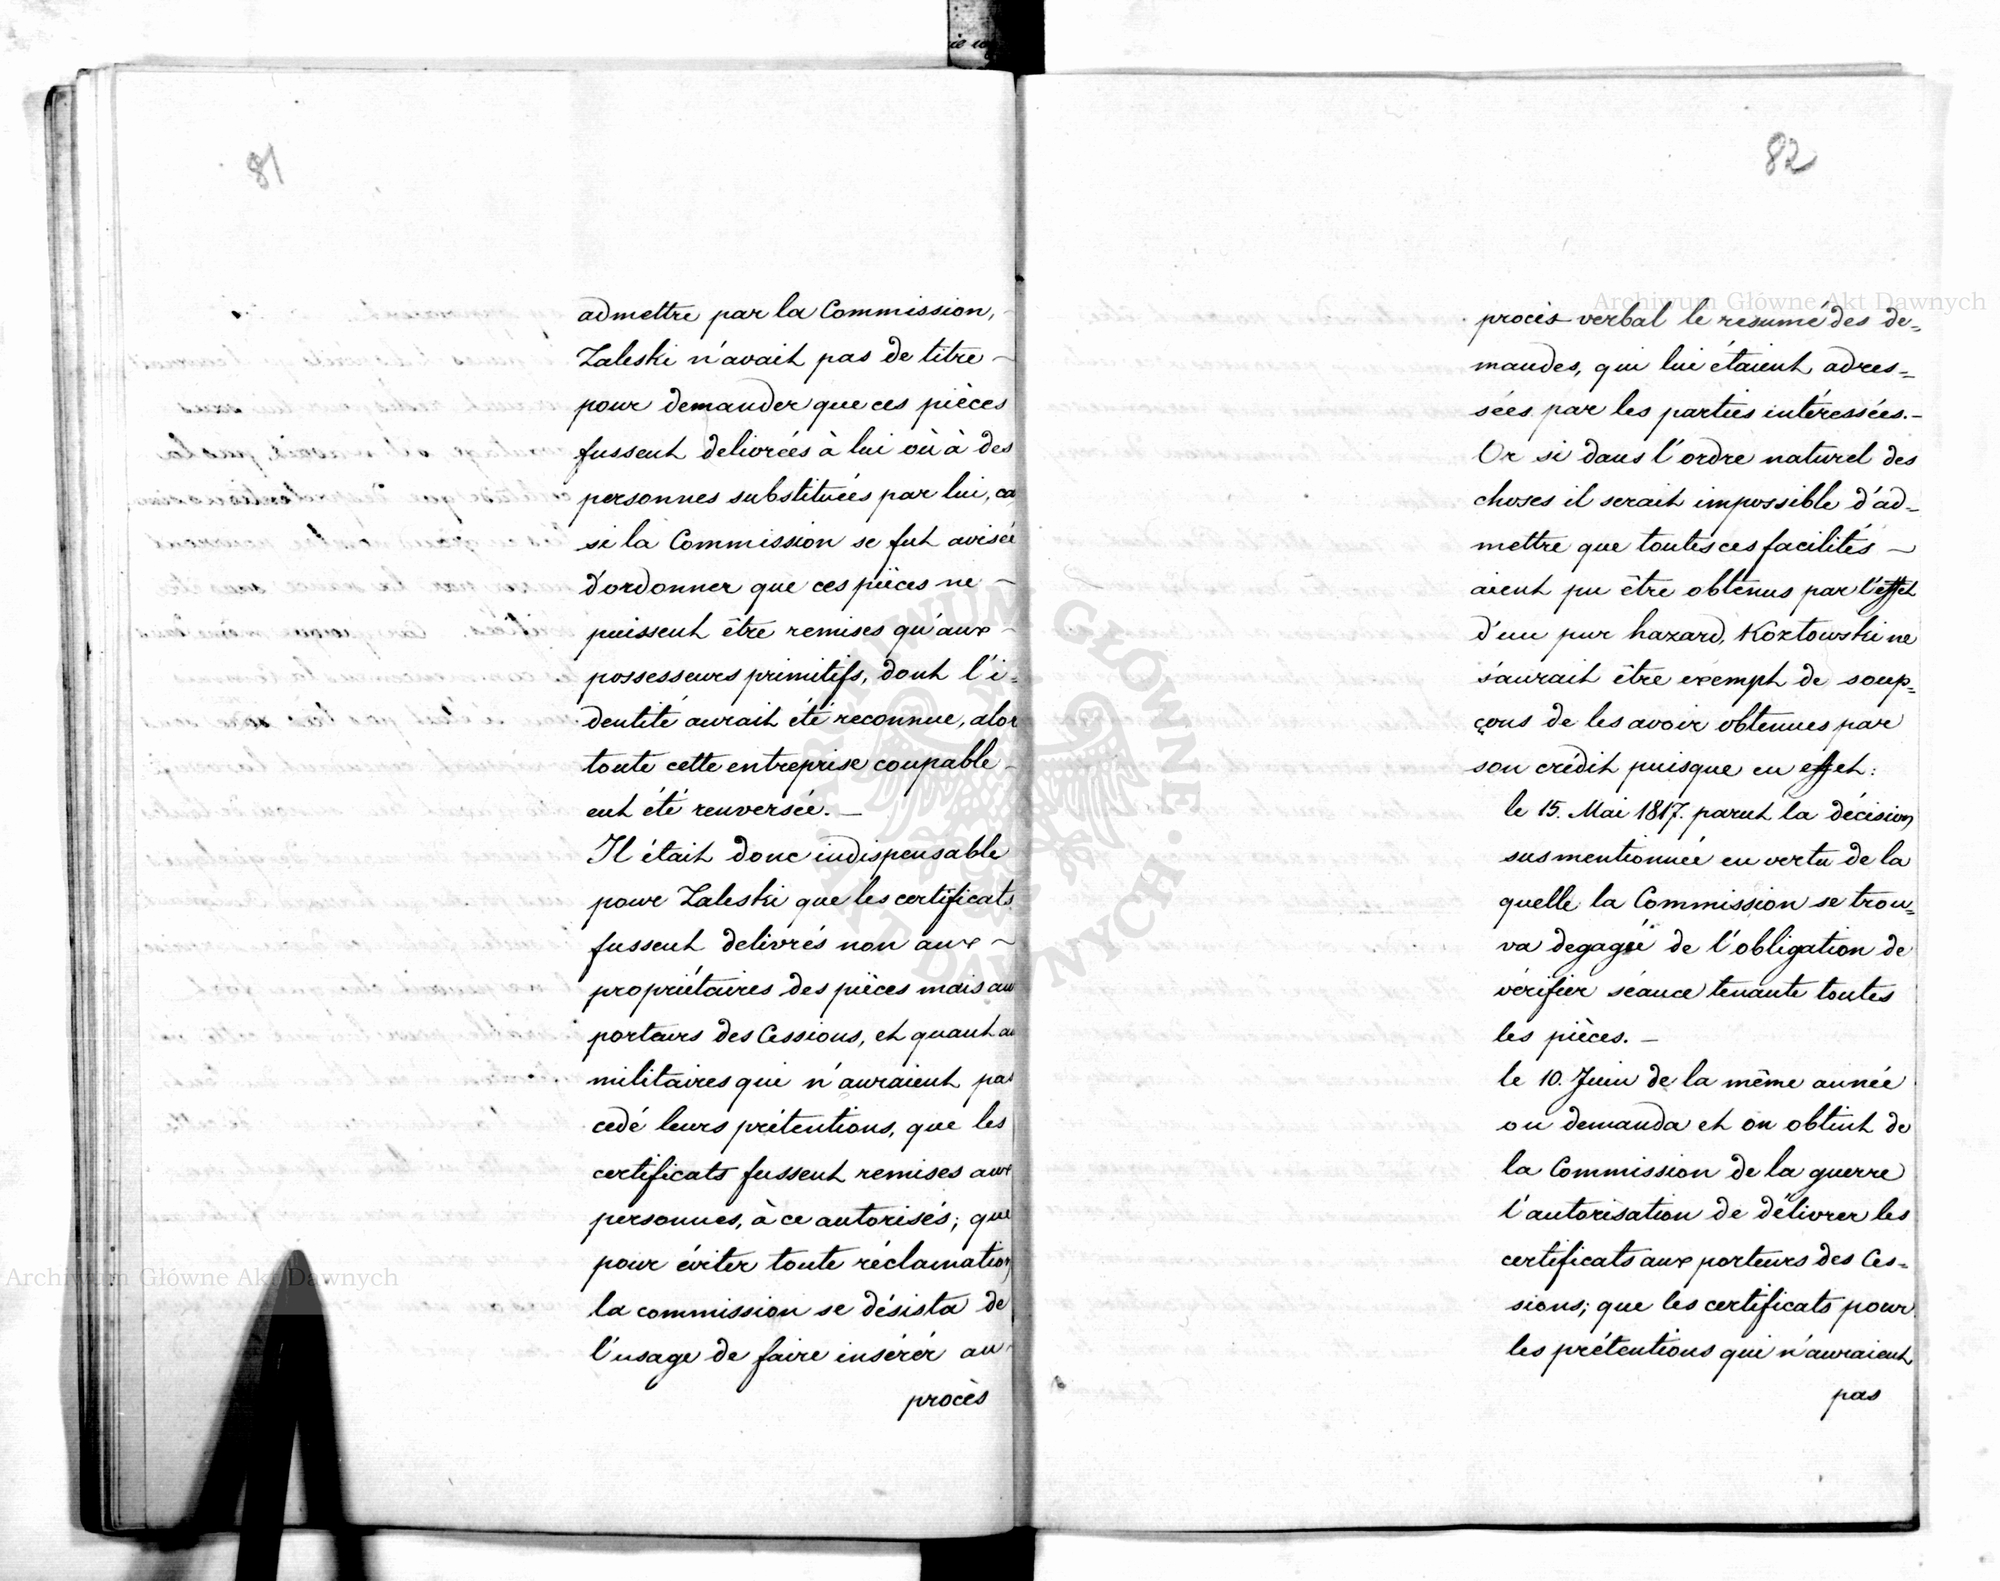 81
admettre par la Commission,
Zaleski n'avait pas de titre –
pour demander que ces pièces
fussent delivrées à lui où à des
personnes substituées par lui, ca
si la Commission se fut avisée
d'ordonner que ces pièces ne –
puissent être remises qu'aux –
possesseurs primitifs, dont l'i=
dentité aurait été reconnue, alor
toute cette entreprise coupable –
eut été renversée. –
Il était donc indispensable
pour Zaleski que les certificats
fussent delivrés non aux –
propriétaires des pièces mais au
porteurs des Cessions, et quant au
militaires qui n'auraient pas
cedé leurs prétentions, que les
certificats fussent remises aux
personnes, à ce autorisés; que
pour éviter toute réclamation
la commission se désista de
l'usage de faire insérér au
procès
82
procès verbal le résumé des de=
mandes, qui lui étaient adres=
sées par les parties intéressées. –
Or si dans l'ordre naturel des
choses il serait impossible d'ad=
mettre que toutes ces facilités –
aient pu être obtenus par l'effet
d'un pur hazard, Kozłowski ne
saurait être exempt de soup=
çons de les avoir obtenues par
son crédit puisque en effet:
le 15. Mai 1817. parut la décision
susmentionnée en vertu de la
quelle la Commission se trou=
va degagée de l'obligation de
vérifier séance tenante toutes
les pièces. –
le 10. Juin de la même année
on demanda et on obtint de
la Commission de la guerre
l'autorisation de délivrer les
certificats aux porteurs des Ces=
sions; que les certificats pour
les prétentions qui n'auraient
pas
Archiwum Główne Akt Dawnych
Archiwum Główne Akt Dawnych
ARCHIWUM GŁÓWNE AKT DAWNYCH